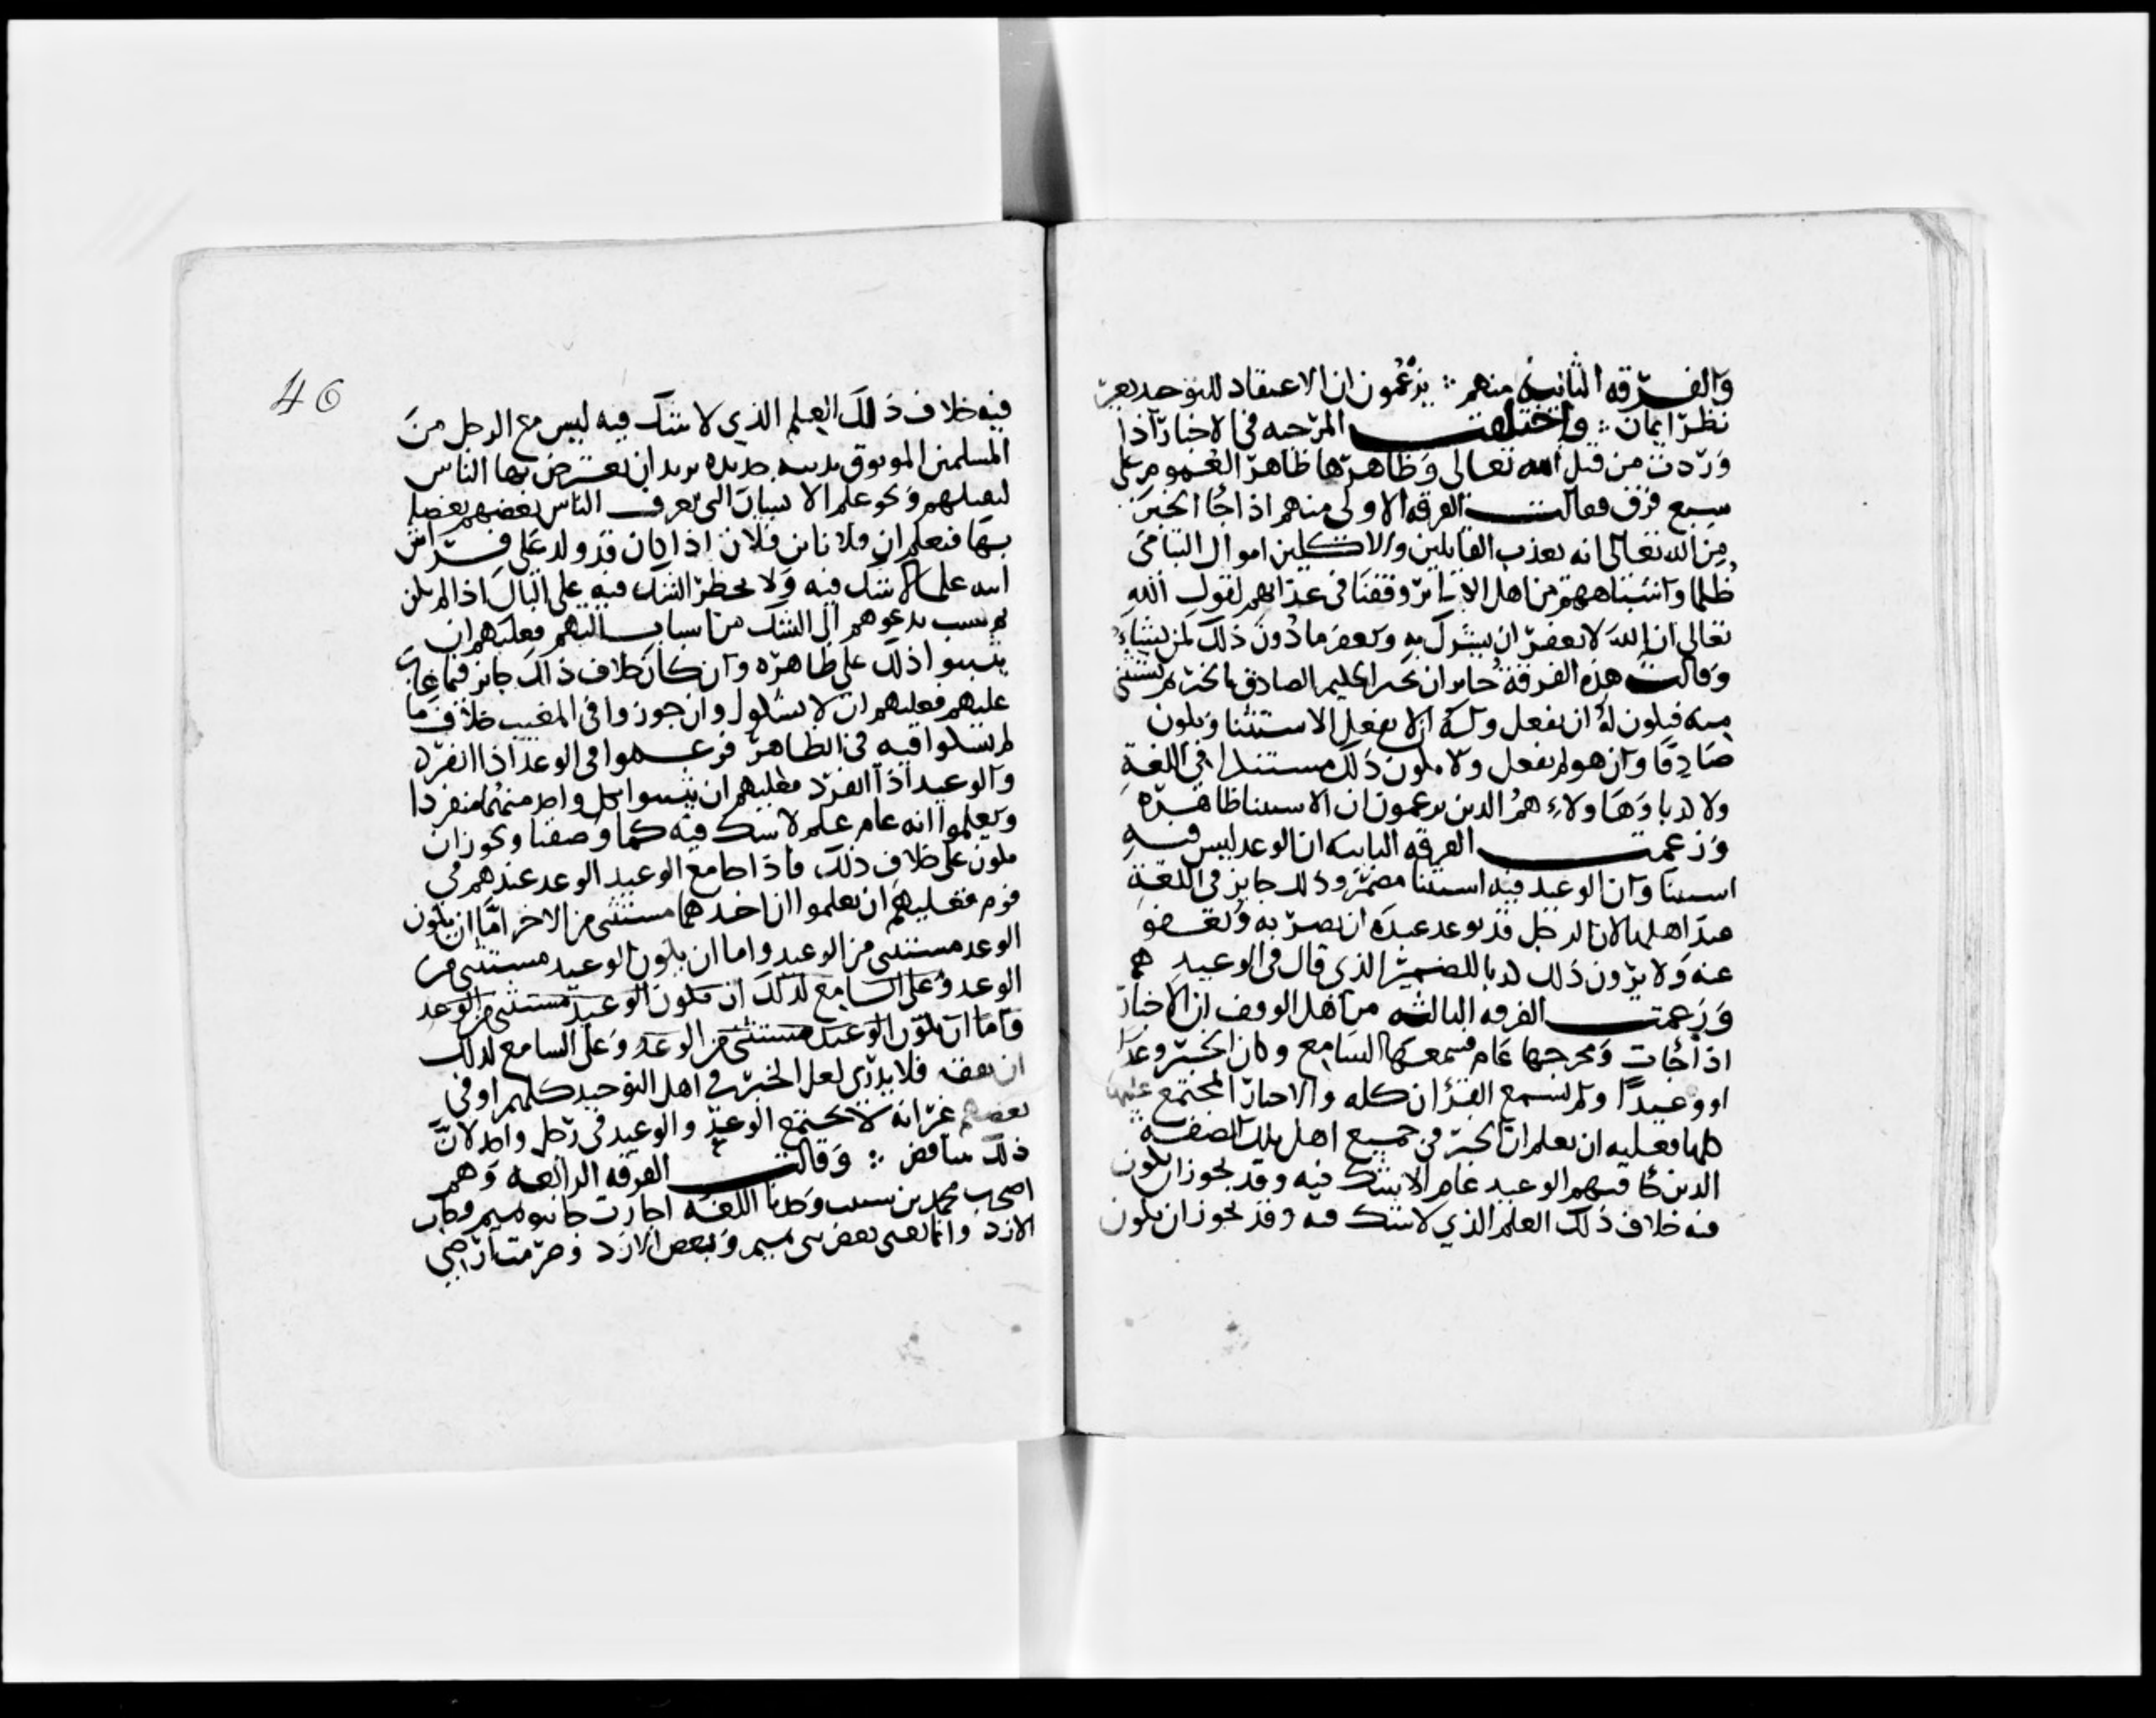 والفرقه الثانيه منهم ؞ يزعمون ان الاعتقاد للتوحيد بغير
نظر ايمان ؞ واختلفت المرجيه في الاخبار اذا
وردت من قبل الله تعالى وظاهرها ظاهر العموم على
سبع فرق فقالت الفرقه الاولى منهم اذا جا الخبر
من الله تعالى انه يعذب القاتلين والاكلين اموال اليتامى
ظلما واشباههم من اهل الكبائر وقفنا في عذابهم لقول الله
تعالى ان الله لا يغفر ان يشرك به ويغفر ما دون ذلك لمن يشاء
وقالت هذه الفرقة جايز ان يخبر الحكيم الصادق بالخبر ثم يستثني
منه فيكون له ان يفعل وله ان لا يفعل الاستثنا ويكون
صادقا وان هو لم يفعل ولا يكون ذلك مستنكرا في اللغة
ولا كذبا وهاولاء هم الذين يزعمون ان الاستثنا ظاهره
وزعمت الفرقه الثانيه ان الوعد ليس فيه
استثنا وان الوعيد فيه استثنا مضمر وذلك جايز في اللغة
عند اهلها لان الرجل قد يوعد عبده ان يضربه ويعفو
عنه ولا يرون ذلك كذبا للضمير الذي قال في الوعيد هم
وزعمت الفرقه الثالثه من اهل الوقف ان الاخبار
اذا جات ومخرجها عام فسمعها السامع وكان الخبر وعدا
او وعيدا ولم يسمع القران كله والاخبار المجتمع عليها
كلها فعليه ان يعلم ان الخبر في جميع اهل تلك الصفة
الذين جا فيهم الوعيد عام لا يشك فيه وقد يجوز ان يكون
فيه خلاف ذلك العلم الذي لا يشك فيه وقد يجوز ان يكون
46
فيه خلاف ذلك العلم الذي لا شك فيه ليس مع الرجل من
المسلمين الموثوق بدينه حديده يريد ان يعترض بها الناس
ليقتلهم ونحو علم الانساب التي تعرف الناس بعضهم بعضا
بها فنعلم ان فلانا ابن فلان اذا كان قد ولد على فراش
ابيه علما لا شك فيه ولا يخطر الشك فيه على البال اذا لم يكن
ثم سبب يدعوهم الى الشك من اسباب التهم فعليهم ان
يثبتوا ذلك على ظاهره وان كان خلاف ذلك جايز فيما غاب
عليهم فعليهم ان لا يشكوا وان جوزوا في المغيب خلاف ما
لم يشكوا فيه في الظاهر فزعموا في الوعد اذا انفرد
والوعيد اذا انفرد فعليهم ان يثبتوا كل واحد منهما منفردا
ويعلموا انه عام علم لا شك فيه كما وصفنا ويجوز ان
يكون على خلاف ذلك فاذا جا مع الوعيد الوعد عندهم في
قوم فعليهم ان يعلموا ان احدهما مستثنى من الاخر اما ان يكون
الوعد مستثنى من الوعيد واما ان يكون الوعيد مستثنى من
الوعد وعلى السامع لذلك ان يكون الوعيد مستثنى من الوعد
واما ان يكون الوعيد مستثنى من الوعد وعلى السامع لذلك
ان يقف فلا يدري لعل الخبر في اهل التوحيد كلهم او في
بعضهم غير انه لا يجتمع الوعد والوعيد في رجل واحد لان
ذلك يتناقض ؞ وقالت الفرقه الرابعه وهم
اصحاب محمد بن شبيب وجدنا اللغه اجازت جا بنو تميم وجات
الازد وانما يعني بعض بني تميم وبعض الازد وصرمت ارضي